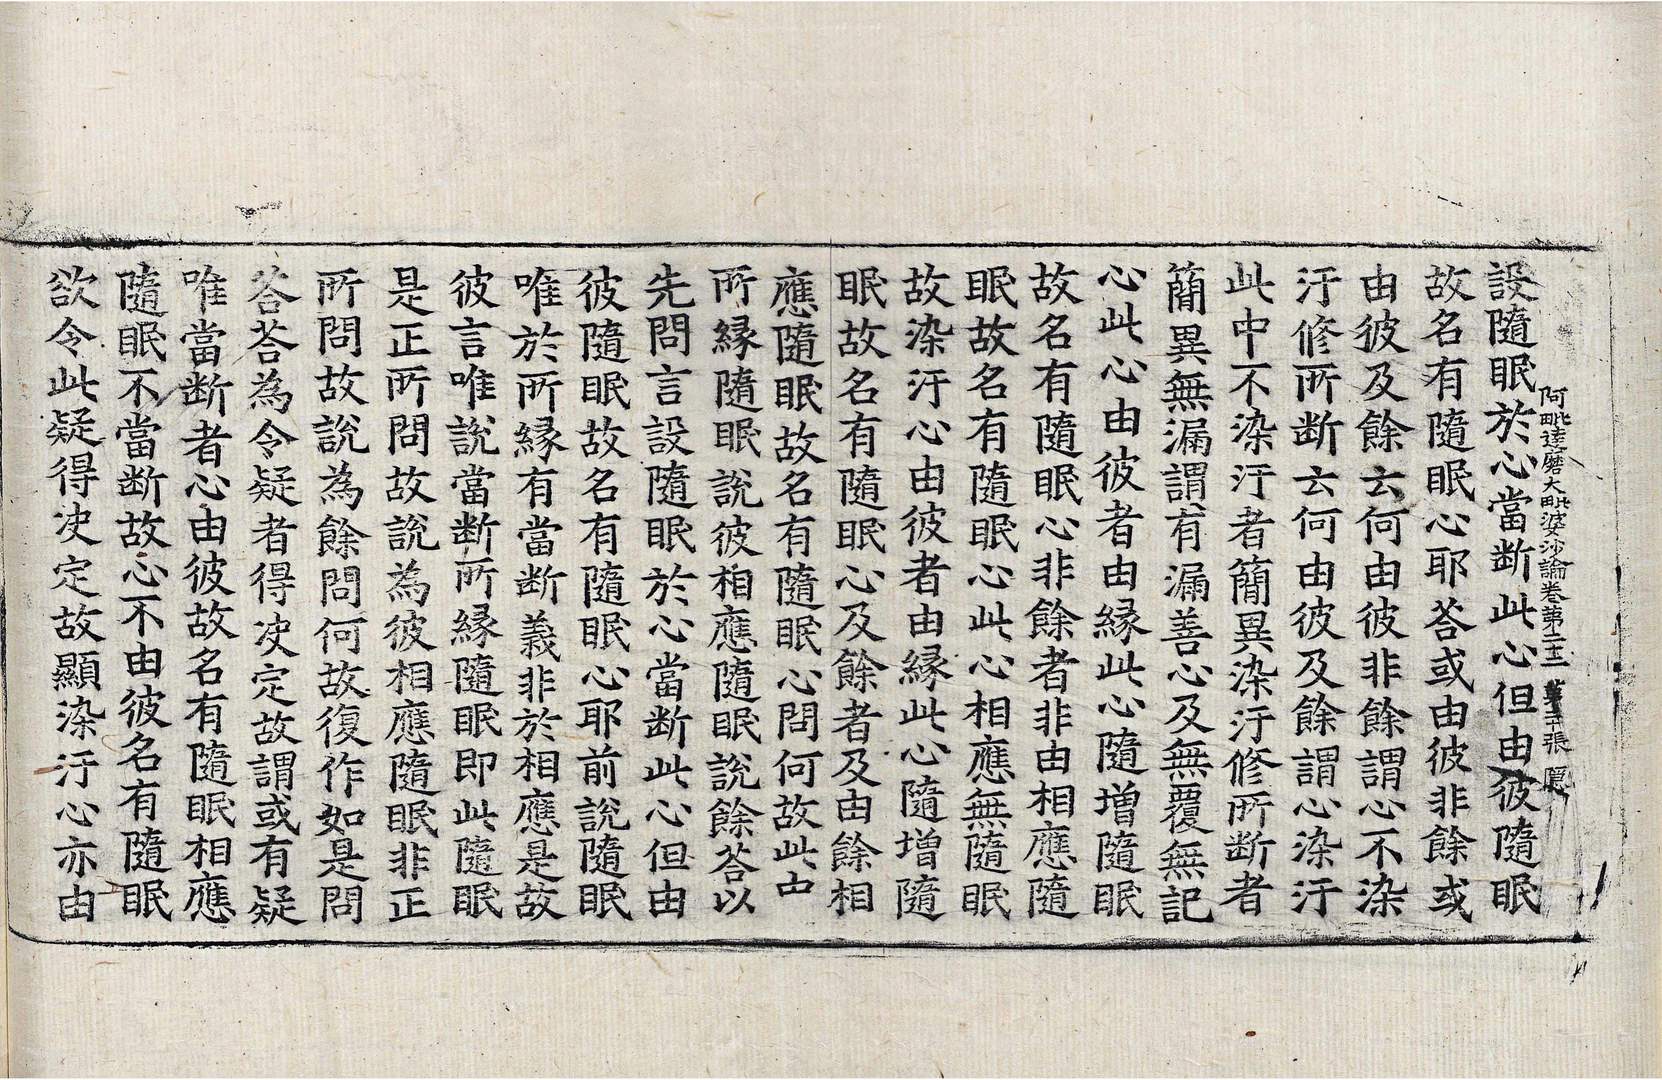 阿毗達磨大毗婆沙論卷第二十二 張
設隨眠於心當断此心但由彼隨眠
故名有隨眠心耶荅或由彼非餘或
由彼及餘云何由彼非餘謂心不染
汙修所断云何由彼及餘謂心染汙
此中不染汙者簡異染汙修所断者
簡異無漏謂有漏善心及無覆無記
心此心由彼者由緣此心隨增隨眠
故名有隨眠心非餘者非由相應隨
眠故名有隨眠心此心相應無隨眠
故染汙心由彼者由緣此心隨增隨
眠故名有隨眠心及餘者及由餘相
應隨眠故名有隨眠心問何故此中
所緣隨眠說彼相應隨眠說餘荅以
先問言設隨眠於心當断此心但由
彼隨眠故名有隨眠心耶前說隨眠
唯於所緣有當断義非於相應是故
彼言唯說當断所緣隨眠即此隨眠
是正所問故說為彼相應隨眠非正
所問故說為餘問何故復作如是問
荅荅為令疑者得决定故謂或有疑
唯當断者心由彼故名有隨眠相應
隨眠不當断故心不由彼名有隨眠
欲令此疑得决定故顯染汙心亦由